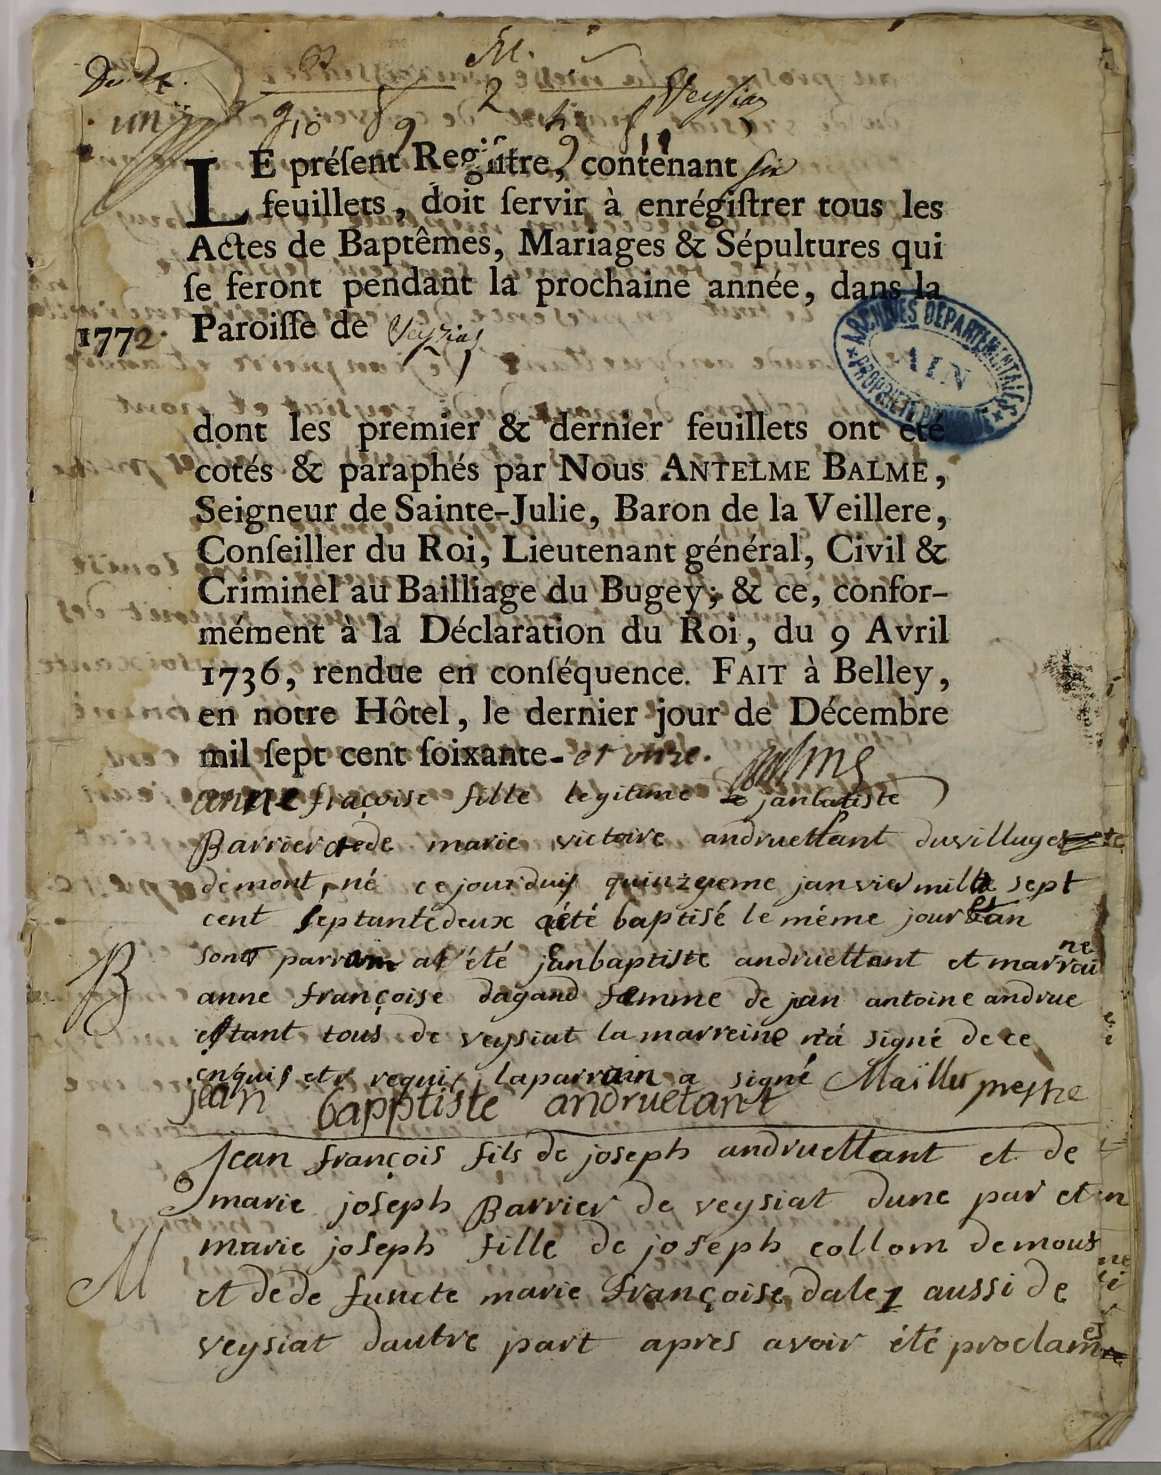 M.
2
Veyzias
un
9 10 9
LE préſent Regiſtre, contenant six
feuillets, doit ſervir à enrégiſtrer tous les
Actes de Baptêmes, Mariages & Sépultures qui
ſe feront pendant la prochaine année, dans la
1772. Paroiſſe de Veyzias
ARCHIVES DÉPARTEMENTALES
AIN
PROPRIÉTÉ PUBLIQUE
dont les premier & dernier feuillets ont été
cotés & paraphés par Nous ANTELME BALME,
Seigneur de Sainte-Julie, Baron de la Veillere,
Conſeiller du Roi, Lieutenant général, Civil &
Criminel au Bailliage du Bugey; & ce, confor-
mément à la Déclaration du Roi, du 9 Avril
1736, rendue en conſéquence. FAIT à Belley,
en notre Hôtel, le dernier jour de Décembre
mil ſept cent ſoixante- et onze. Balme
anne fraçoise fille legitime de janbatiste
Barrier et de marie victoire andruettant du village
de mont, né ce jourduy quinzyeme janvier mille sept
cent septante deux a été baptisé le méme jour
son parrain at été janbaptiste andruettant et marraine
B
anne françoise dagand famme de jan antoine andrue
stant tous de veysiat la marreine n'a signé de ce
enquis et requis, la parrain a signé Maillet prestre
jean bapptiste andruetant
Jean françois fils de joseph andruettant et de
marie joseph Barrier de veysiat dune par et en
marie joseph fille de joseph collom de mous
M
et de de functe marie françoise dalez aussi de
veysiat dautre part apres avoir été proclamés